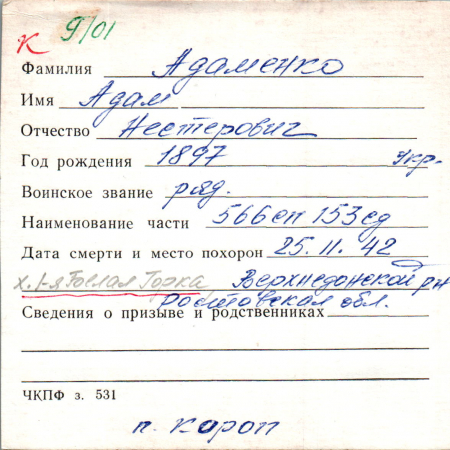 К 9/01
Фамилия Адаменко
Имя Адам
Отчество Нестерович
Год рождения 1897 Укр.
Воинское звание ряд.
Наименование части 566 сп 153 сд
Дата смерти и место похорон 25.11.42
х. 1-я Белая Горка Верхнедонской рн
Ростовская обл.
Сведения о призыве и родственниках
ЧКПФ з. 531
п. Короп